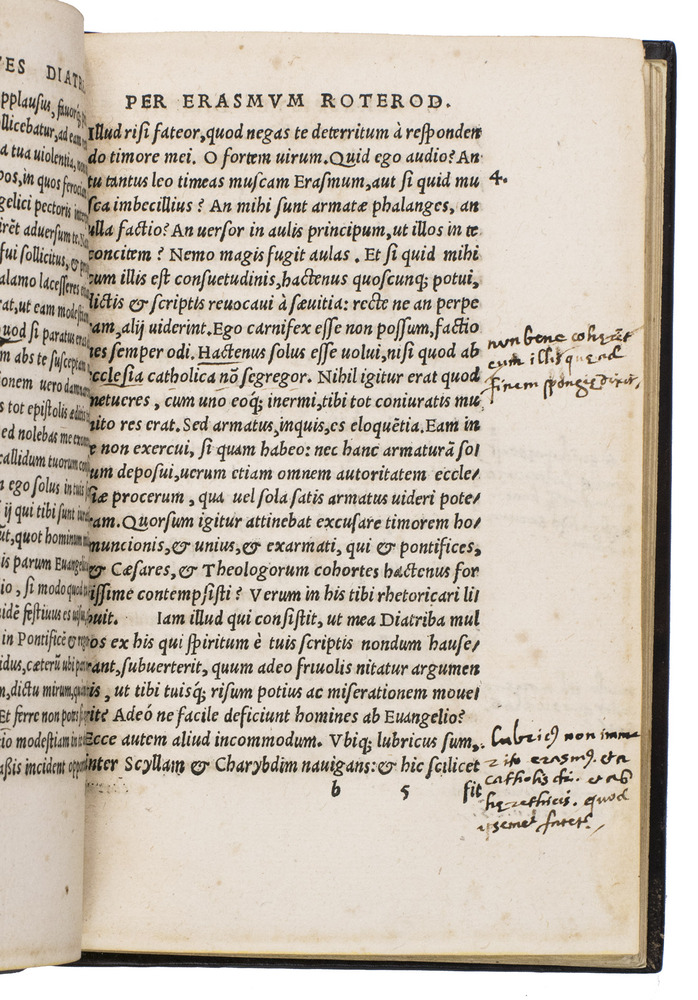 VES DIATR
applausus, fauorē
llicebatur, ad eam
a tua uiolentia,
os, in quos feroci
gelici pectoris
irēt aduersum te.
fui sollicitus, &
alamo lacesseres
rat, ut eam modestiam
uod si paratus
m abs te susceptam
ionem uero
s tot epistolis
ed nolebas me
callidum tuorum
n ego solus in tuis
ij qui tibi sunt
ut, quot hominum
is parum Euangelic
io, si modo quod
uidē festiuus es
in Pontificē &
idus, cæterū ubi
n, dictu mirum,
Et ferre non potes
tio modestiam in te
aßis incident
PER ERASMVM ROTEROD.
Illud risi fateor, quod negas te deterritum à responden
do timore mei. O fortem uirum. Quid ego audio? An
tu tantus leo timeas muscam Erasmum, aut si quid mu
sca imbecillius? An mihi sunt armatæ phalanges, an
ulla factio? An uersor in aulis principum, ut illos in te
concitem? Nemo magis fugit aulas. Et si quid mihi
cum illis est consuetudinis, hactenus quoscunq; potui,
dictis & scriptis reuocaui à sæuitia: recte ne an perpe
ram, alij uiderint. Ego carnifex esse non possum, factio
nes semper odi. Hactenus solus esse uolui, nisi quod ab
ecclesia catholica nõ segregor. Nihil igitur erat quod
metueres, cum uno eoq; inermi, tibi tot coniuratis mu
nito res erat. Sed armatus, inquis, es eloquētia. Eam in
te non exercui, si quam habeo: nec hanc armaturā so/
lum deposui, uerum etiam omnem autoritatem eccle/
siæ procerum, qua uel sola satis armatus uideri pote/
ram. Quorsum igitur attinebat excusare timorem ho/
muncionis, & unius, & exarmati, qui & pontifices,
& Cæsares, & Theologorum cohortes hactenus for
tissime contempsisti? Verum in his tibi rhetoricari li/
buit. Iam illud qui consistit, ut mea Diatriba mul
tos ex his qui spiritum è tuis scriptis nondum hause/
rant, subuerterit, quum adeo friuolis nitatur argumen
tis, ut tibi tuisq; risum potius ac miserationem moue/
rit? Adeó ne facile deficiunt homines ab Euangelio?
Ecce autem aliud incommodum. Vbiq; lubricus sum,
inter Scyllam & Charybdim nauigans: & hic scilicet
b 5 fit
4.
non bene coherēt
cum illis que ad
finem spongie dixit,
lubricꝰ non imme
rito erasmꝰ. et a
catholicis dici. et ab
hęrethicis. quod
ipsemet fatet